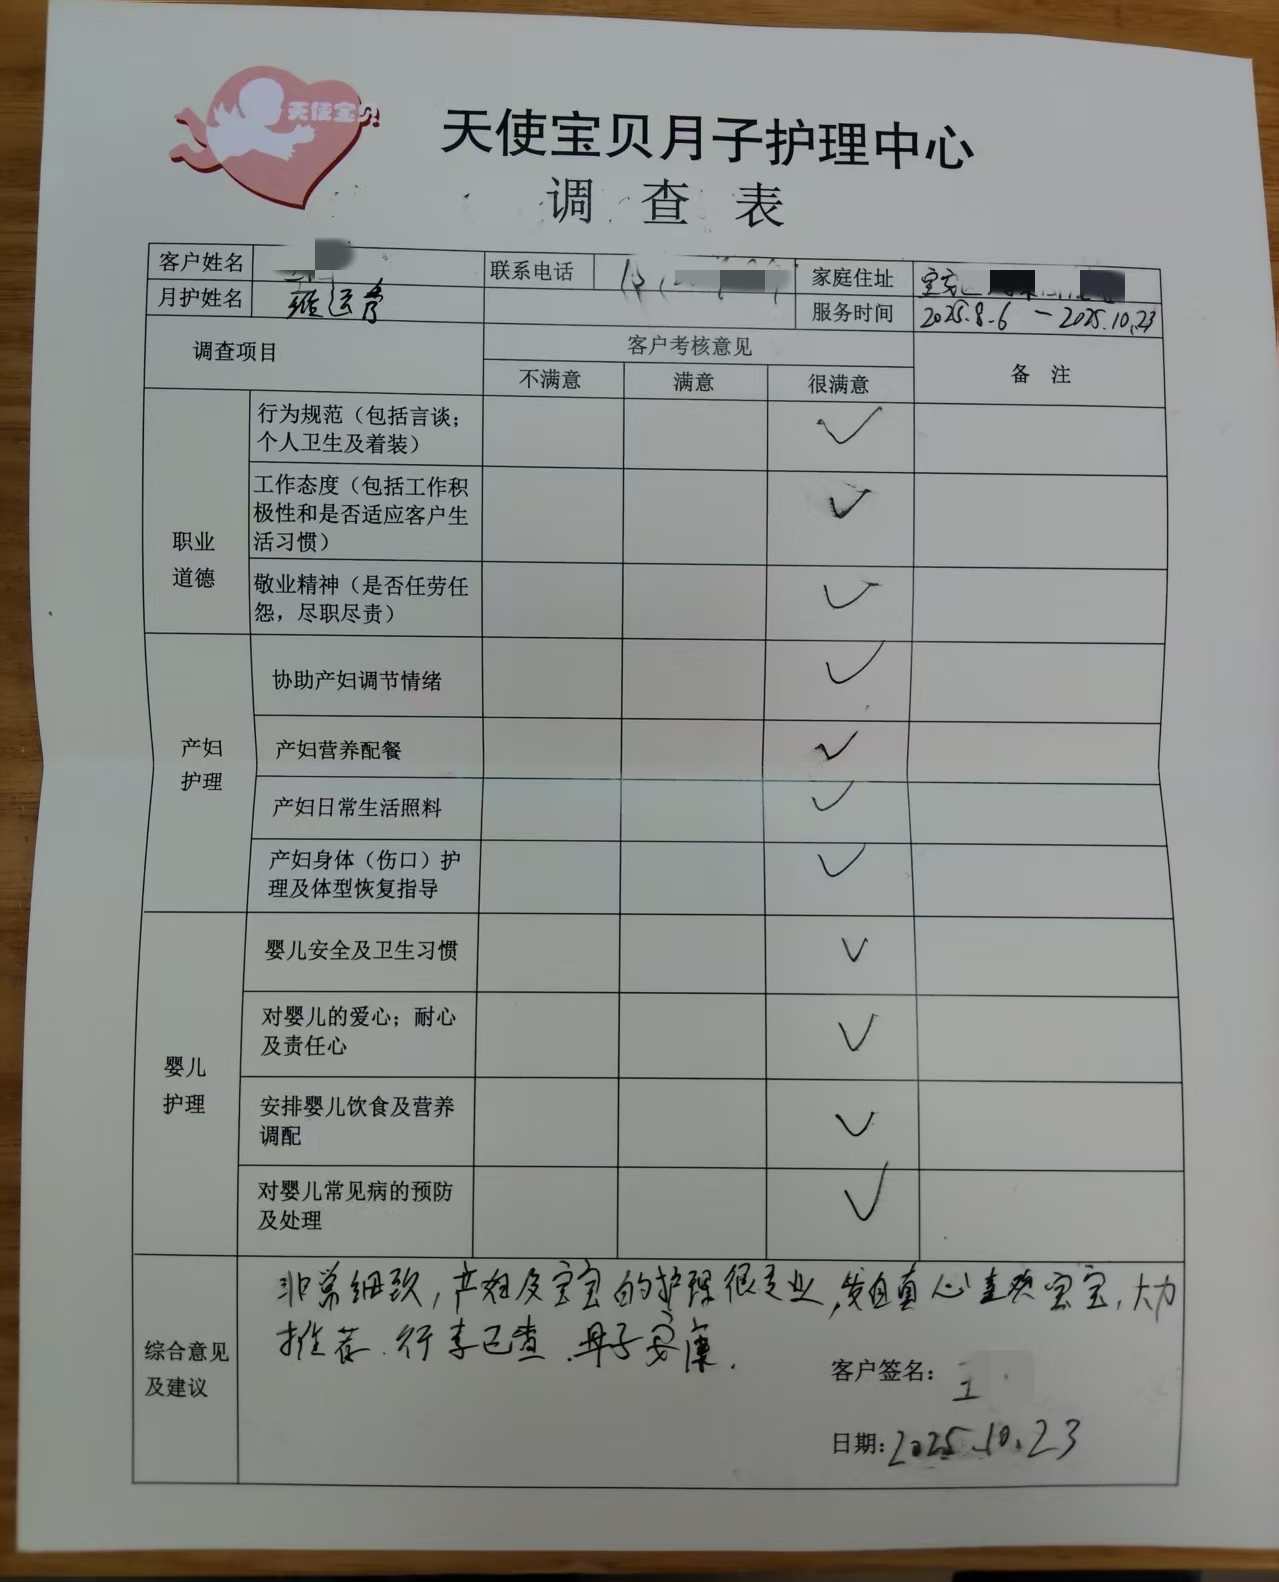 天使宝贝
天使宝贝月子护理中心
调 查 表
客户姓名 联系电话 家庭住址
月护姓名 服务时间 2025.8.6 — 2025.10.23
调查项目 客户考核意见 备 注
不满意 满意 很满意
职业
道德
行为规范（包括言谈；
个人卫生及着装）
工作态度（包括工作积
极性和是否适应客户生
活习惯）
敬业精神（是否任劳任
怨，尽职尽责）
产妇
护理
协助产妇调节情绪
产妇营养配餐
产妇日常生活照料
产妇身体（伤口）护
理及体型恢复指导
婴儿
护理
婴儿安全及卫生习惯
对婴儿的爱心；耐心
及责任心
安排婴儿饮食及营养
调配
对婴儿常见病的预防
及处理
综合意见
及建议
非常细致，产妇及宝宝的护理很专业，发自真心喜欢宝宝，大力
推荐．行李已查．母子安康．
客户签名：王
日期：2025.10.23